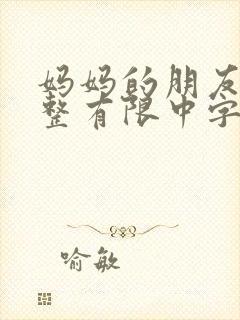 妈妈的朋友
整有限中字
喻敏